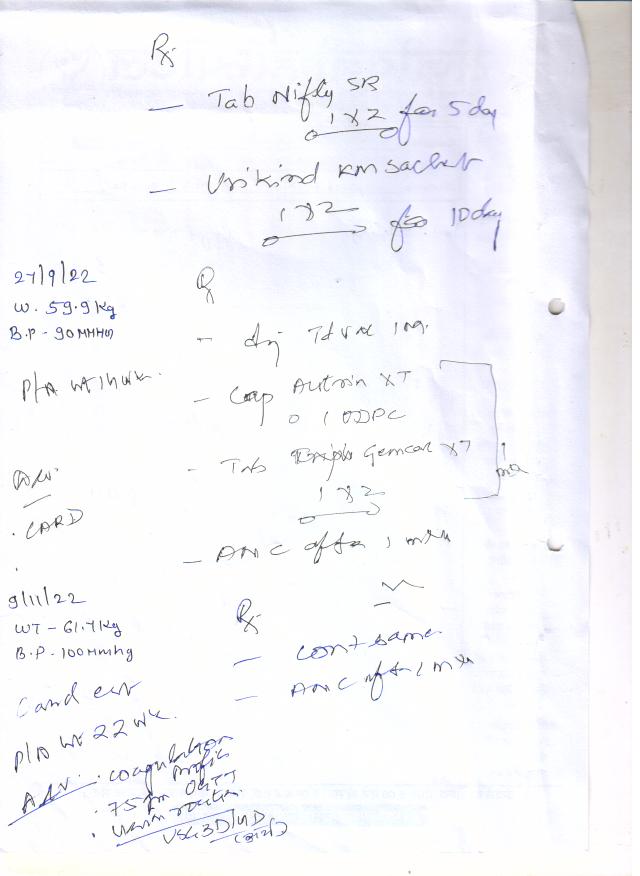 Rx
— Tab Nifly SR
1 x 2 for 5 day
— Urikind KM sachet
1 x 2 for 10 day
27/9/22
W. 59.9 Kg
B.P - 90 MMHg
Rx
- Inj Td vac
P/A ut
- Cap Autrin XT
0 1 OD PC
- Tab Gemcal XT
1 x 2
Adv.
. CARD
- ANC after 1 mth
9/11/22
WT - 61.4 Kg
B.P. - 100 MMHg
Rx
— cont same
— ANC after 1 mth
P/A ut 22 wk.
Adv. . coagulation
profile
. 75 gm OGTT
. Urine routine
USG 3D/4D